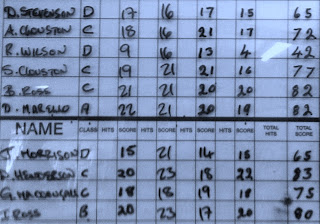 D. STEVENSON D 17 16 17 15 65
A. CLOUSTON C 18 16 21 17 72
R. WILSON D 9 16 13 4 42
S. CLOUSTON C 19 21 21 16 77
B. ROSS C 21 21 20 20 82
D. MARELLO A 22 21 20 19 82
NAME CLASS HITS SCORE HITS SCORE HITS SCORE HITS SCORE TOTAL HITS TOTAL SCORE
J. MORRISON D 15 21 14 15 65
D. HENDERSON C 20 23 18 22 83
G. MACDOUGALL C 18 18 19 18 75
I ROSS B 20 23 17 20 80